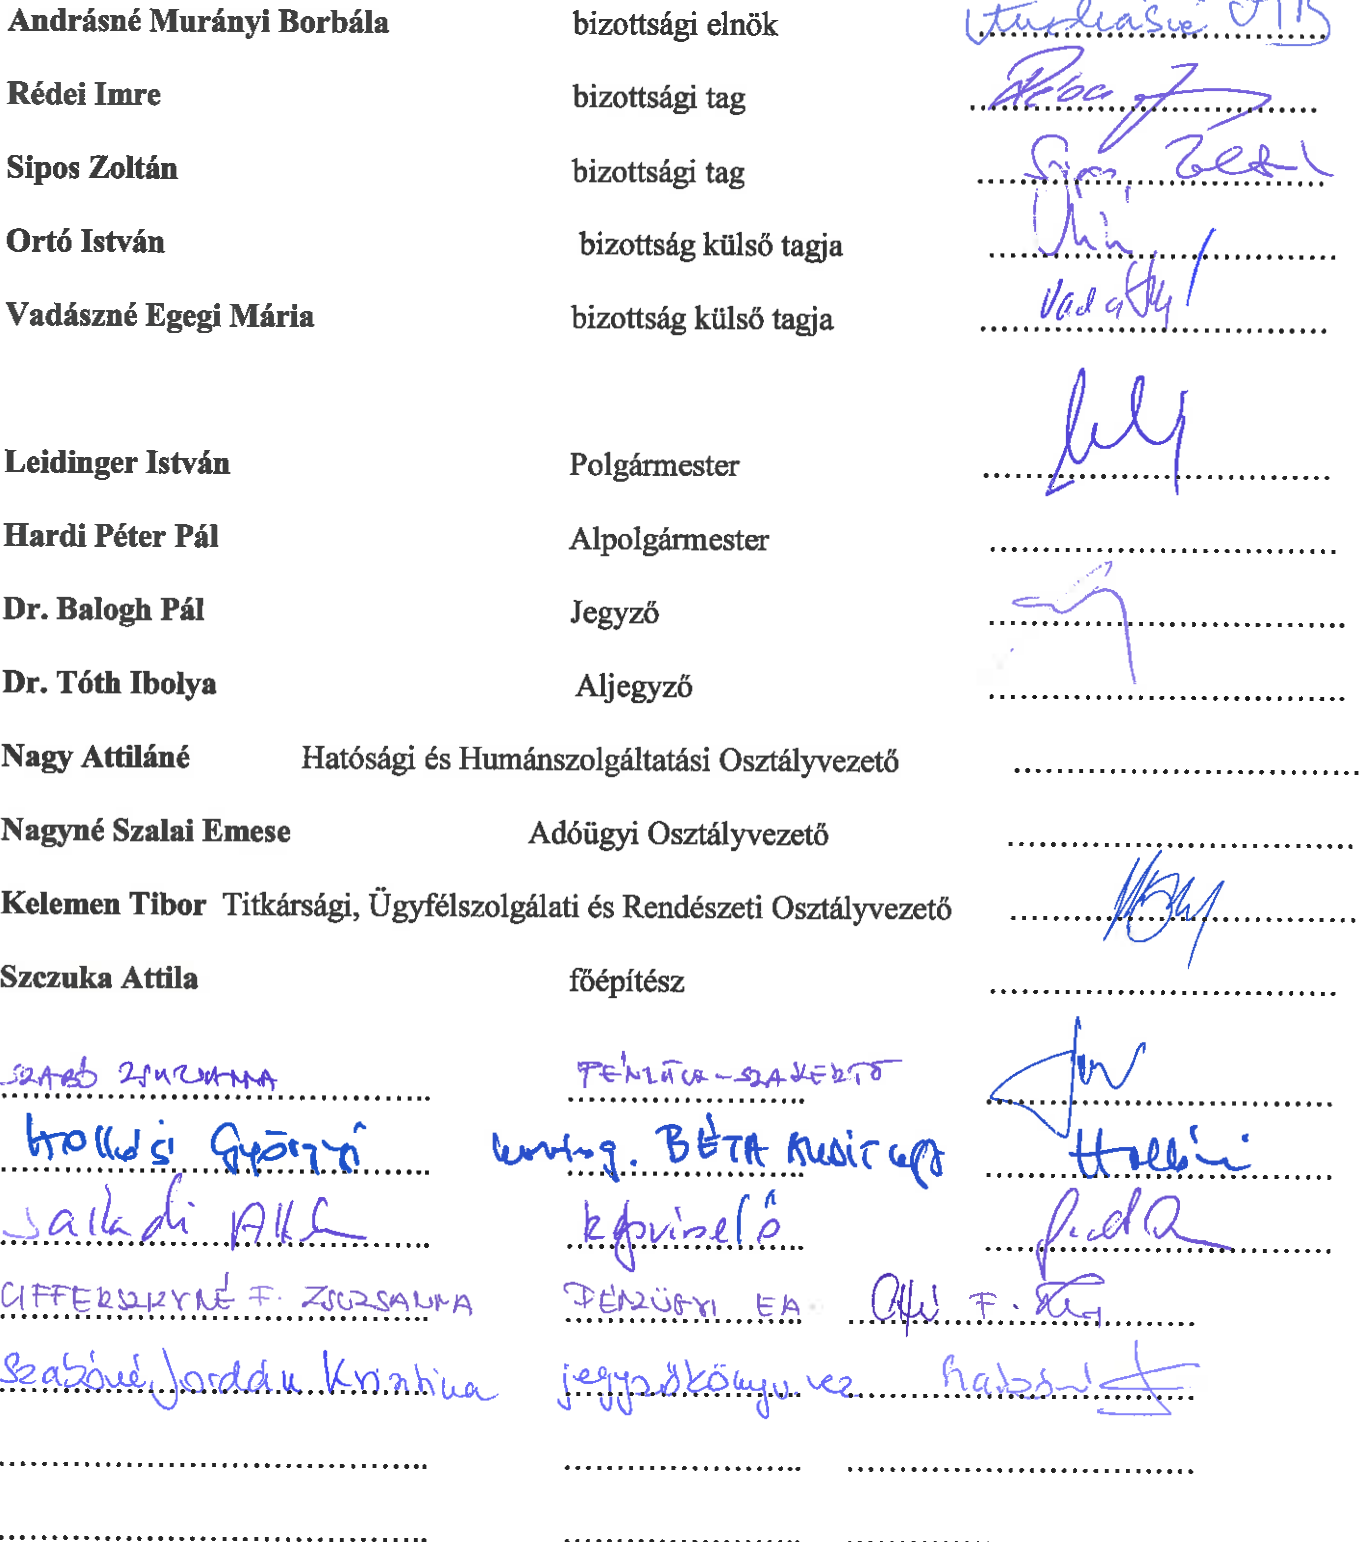 Andrásné Murányi Borbála bizottsági elnök
Rédei Imre bizottsági tag
Sipos Zoltán bizottsági tag Sipos Zoltán
Ortó István bizottság külső tagja
Vadászné Egegi Mária bizottság külső tagja
Leidinger István Polgármester
Hardi Péter Pál Alpolgármester
Dr. Balogh Pál Jegyző
Dr. Tóth Ibolya Aljegyző
Nagy Attiláné Hatósági és Humánszolgáltatási Osztályvezető
Nagyné Szalai Emese Adóügyi Osztályvezető
Kelemen Tibor Titkársági, Ügyfélszolgálati és Rendészeti Osztályvezető
Szczuka Attila főépítész
SZABÓ ZSUZSANNA PÉNZÜGYI-SZAKÉRTŐ
Hollósi Györgyi BÉTA AUDIT
képviselő
CIFFERSZKYNÉ F. ZSUZSANNA PÉNZÜGYI EA
Szabóné Jordán Krisztina jegyzőkönyv. vez